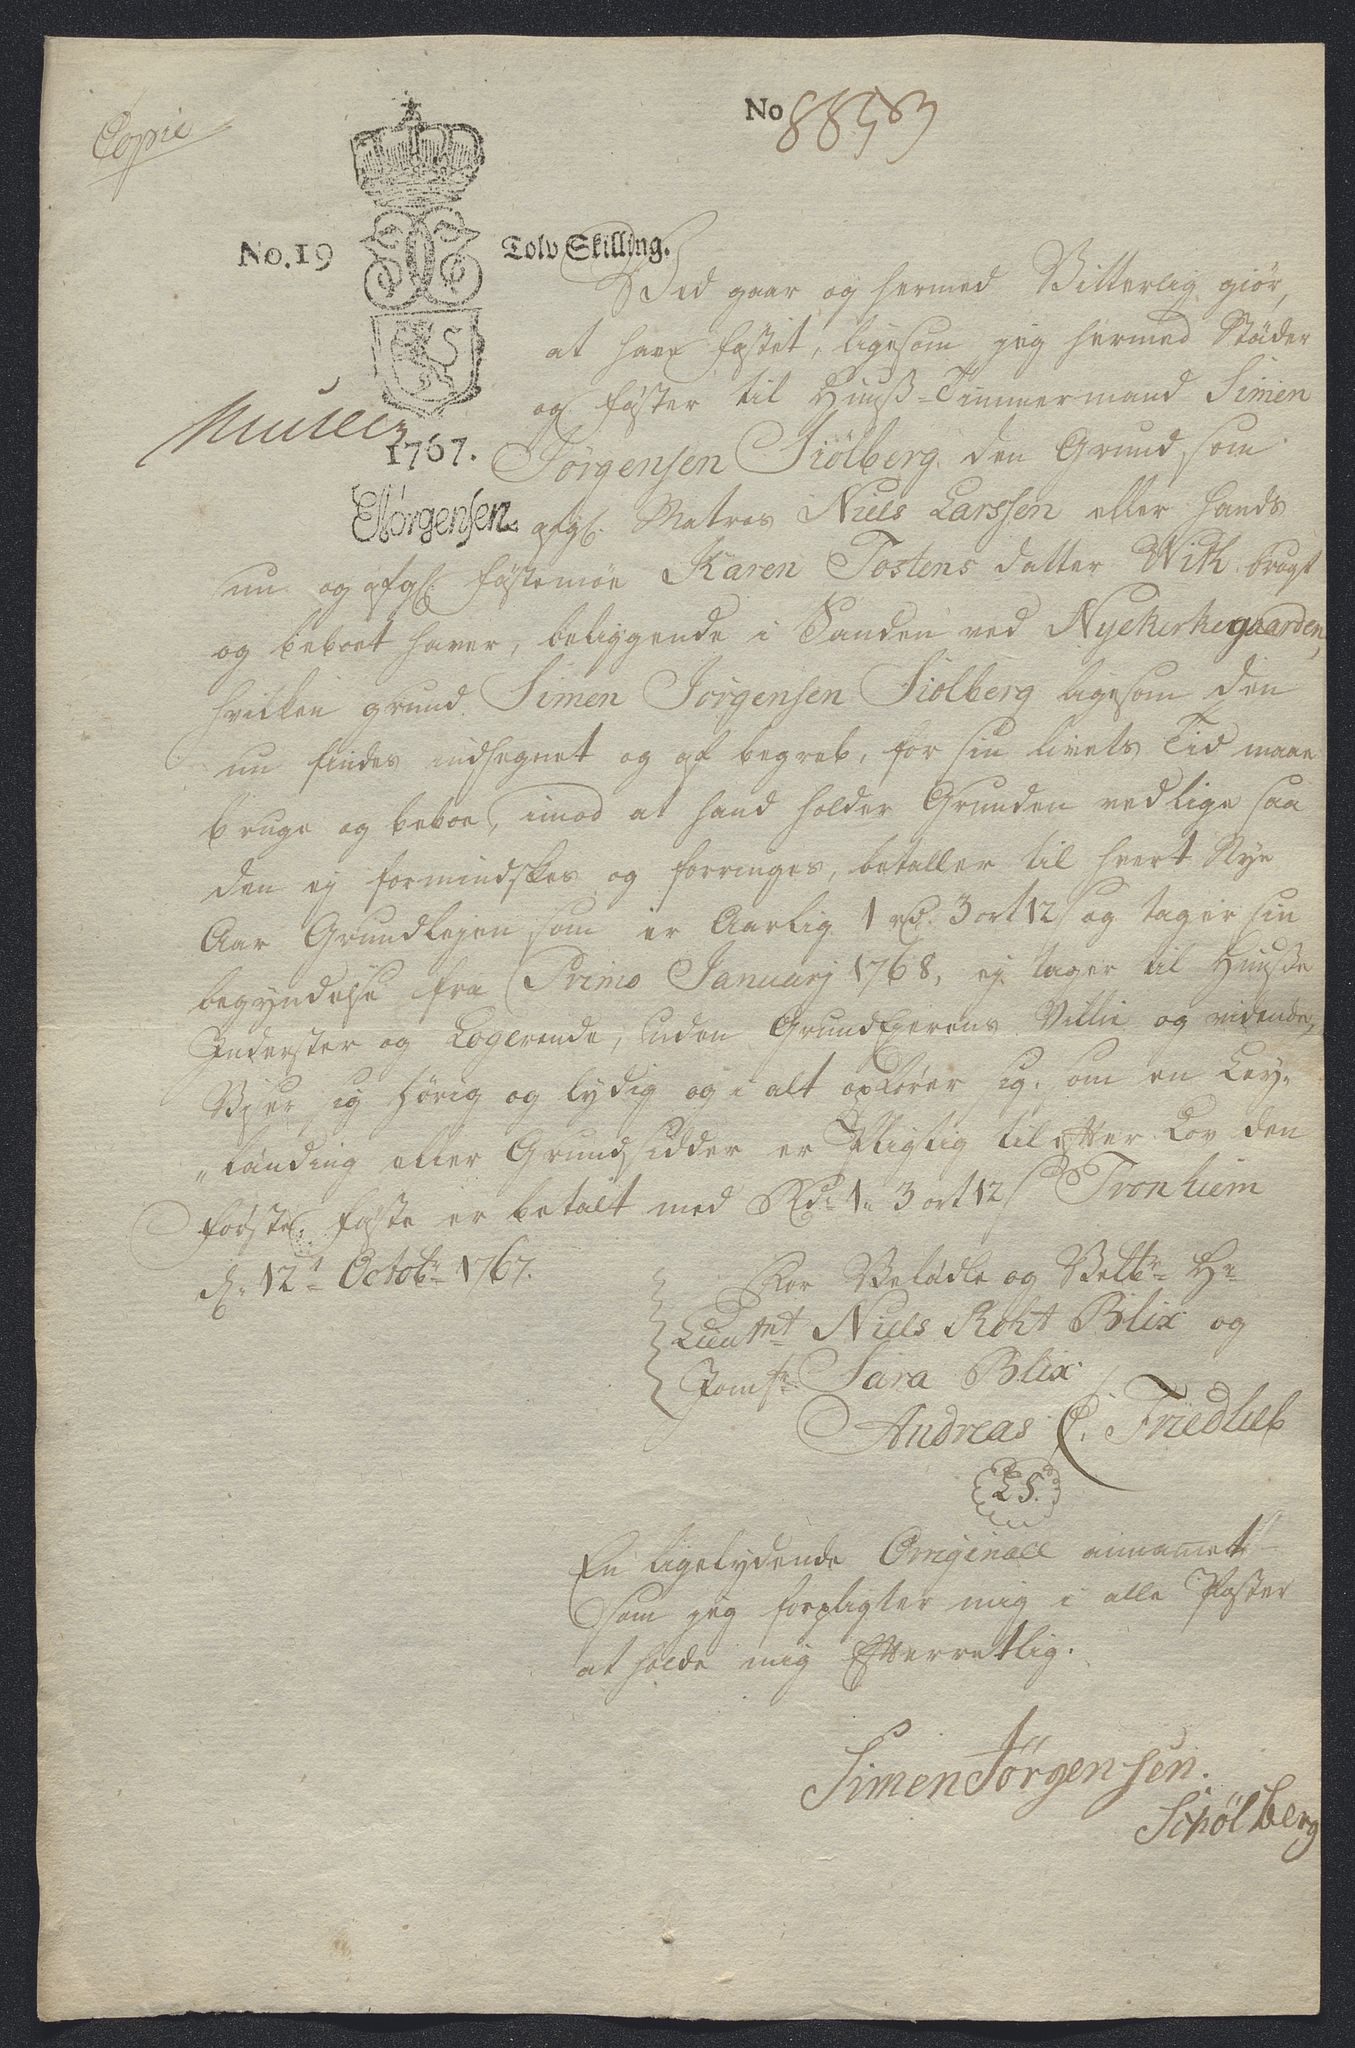 Copie
No 88583
No. 19 Tolv Skilling.
Ved gaar og hermed Vitterlig giör,
at have fæstet, ligesom jeg hermed Stæder
og fæster til Huuß-Timmermand Simen
Müller
1767.
Jörgensen Siölberg den Grund, som
EJörgensen
afg. Matros Niels Larssen eller hands
nu og afg. fæstemöe Karen Tostens datter Wiik brugt
og beboet haver, beliggende i Sanden ved Nyekirkegaarden,
hvilken grund Simen Jörgensen Siölberg ligesom den
nu findes indhegnet og af begreb, for sin livets Tid maae
bruge og beboe, imod at hand holder Grunden vedlige saa
den ej formindskes og forringes, betaller til hvert Nye
Aar Grundlejen som er Aarlig 1 rd. 3 ort 12 s og tager sin
begyndelse fra Primo Januarj 1768, ej tager til Huuße
Inderster og Logerende, uden GrundEyerens Villie og vidende,
Viser sig hörig og lydig og i alt opförer sig, som en Ley-
„lænding eller Grundsidder er Pligtig til efter Lov den
förste fæste er betalt med Rd 1 „ 3 ort 12 s Tronhiem
d. 12t Octobr 1767.
For Velædle og Velbr Hr
Lieutnt Niels Roht Blix og
Jomfr Sara Blix
Andreas C. Friedlieb
LS.
En ligelydende Original annammet
som jeg forpligter mig i alle Poster
at holde mig Efterretlig.
Simen Jörgensen.
Siölberg